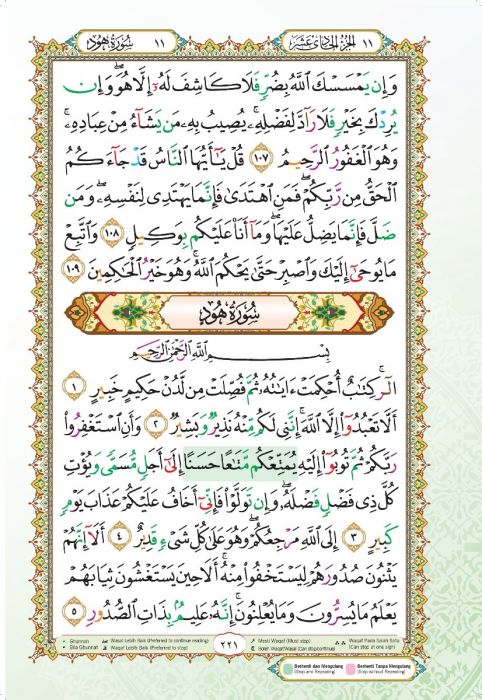 ١١ الجزء الحادي عشر ١١ سُورَةُ هُود
وَإِن يَمْسَسْكَ ٱللَّهُ بِضُرٍّ فَلَا كَاشِفَ لَهُۥٓ إِلَّا هُوَۖ وَإِن
يُرِدْكَ بِخَيْرٍ فَلَا رَآدَّ لِفَضْلِهِۦۚ يُصِيبُ بِهِۦ مَن يَشَآءُ مِنْ عِبَادِهِۦۚ
وَهُوَ ٱلْغَفُورُ ٱلرَّحِيمُ ١٠٧ قُلْ يَٰٓأَيُّهَا ٱلنَّاسُ قَدْ جَآءَكُمُ
ٱلْحَقُّ مِن رَّبِّكُمْۖ فَمَنِ ٱهْتَدَىٰ فَإِنَّمَا يَهْتَدِى لِنَفْسِهِۦۖ وَمَن
ضَلَّ فَإِنَّمَا يَضِلُّ عَلَيْهَاۖ وَمَآ أَنَا۠ عَلَيْكُم بِوَكِيلٍ ١٠٨ وَٱتَّبِعْ
مَا يُوحَىٰٓ إِلَيْكَ وَٱصْبِرْ حَتَّىٰ يَحْكُمَ ٱللَّهُۚ وَهُوَ خَيْرُ ٱلْحَٰكِمِينَ ١٠٩
سُورَةُ هُود
بِسْمِ ٱللَّهِ ٱلرَّحْمَٰنِ ٱلرَّحِيمِ
الٓرۚ كِتَٰبٌ أُحْكِمَتْ ءَايَٰتُهُۥ ثُمَّ فُصِّلَتْ مِن لَّدُنْ حَكِيمٍ خَبِيرٍ ١
أَلَّا تَعْبُدُوٓا۟ إِلَّا ٱللَّهَۚ إِنَّنِى لَكُم مِّنْهُ نَذِيرٌ وَبَشِيرٌ ٢ وَأَنِ ٱسْتَغْفِرُوا۟
رَبَّكُمْ ثُمَّ تُوبُوٓا۟ إِلَيْهِ يُمَتِّعْكُم مَّتَٰعًا حَسَنًا إِلَىٰٓ أَجَلٍ مُّسَمًّى وَيُؤْتِ
كُلَّ ذِى فَضْلٍ فَضْلَهُۥۖ وَإِن تَوَلَّوْا۟ فَإِنِّىٓ أَخَافُ عَلَيْكُمْ عَذَابَ يَوْمٍ
كَبِيرٍ ٣ إِلَى ٱللَّهِ مَرْجِعُكُمْۖ وَهُوَ عَلَىٰ كُلِّ شَىْءٍ قَدِيرٌ ٤ أَلَآ إِنَّهُمْ
يَثْنُونَ صُدُورَهُمْ لِيَسْتَخْفُوا۟ مِنْهُۚ أَلَا حِينَ يَسْتَغْشُونَ ثِيَابَهُمْ
يَعْلَمُ مَا يُسِرُّونَ وَمَا يُعْلِنُونَۚ إِنَّهُۥ عَلِيمٌۢ بِذَاتِ ٱلصُّدُورِ ٥
Ghunnah Waqaf Lebih Baik (Preferred to continue reading) ٢٢١ Mesti Waqaf (Must stop) Waqaf Pada Salah Satu
Bila Ghunnah Waqaf Lebih Baik (Preferred to stop) Boleh Waqaf (Can stop/continue) (Can stop at one sign)
Berhenti dan Mengulang Berhenti Tanpa Mengulang
(Stop and Repeat) (Stop without Repeat)